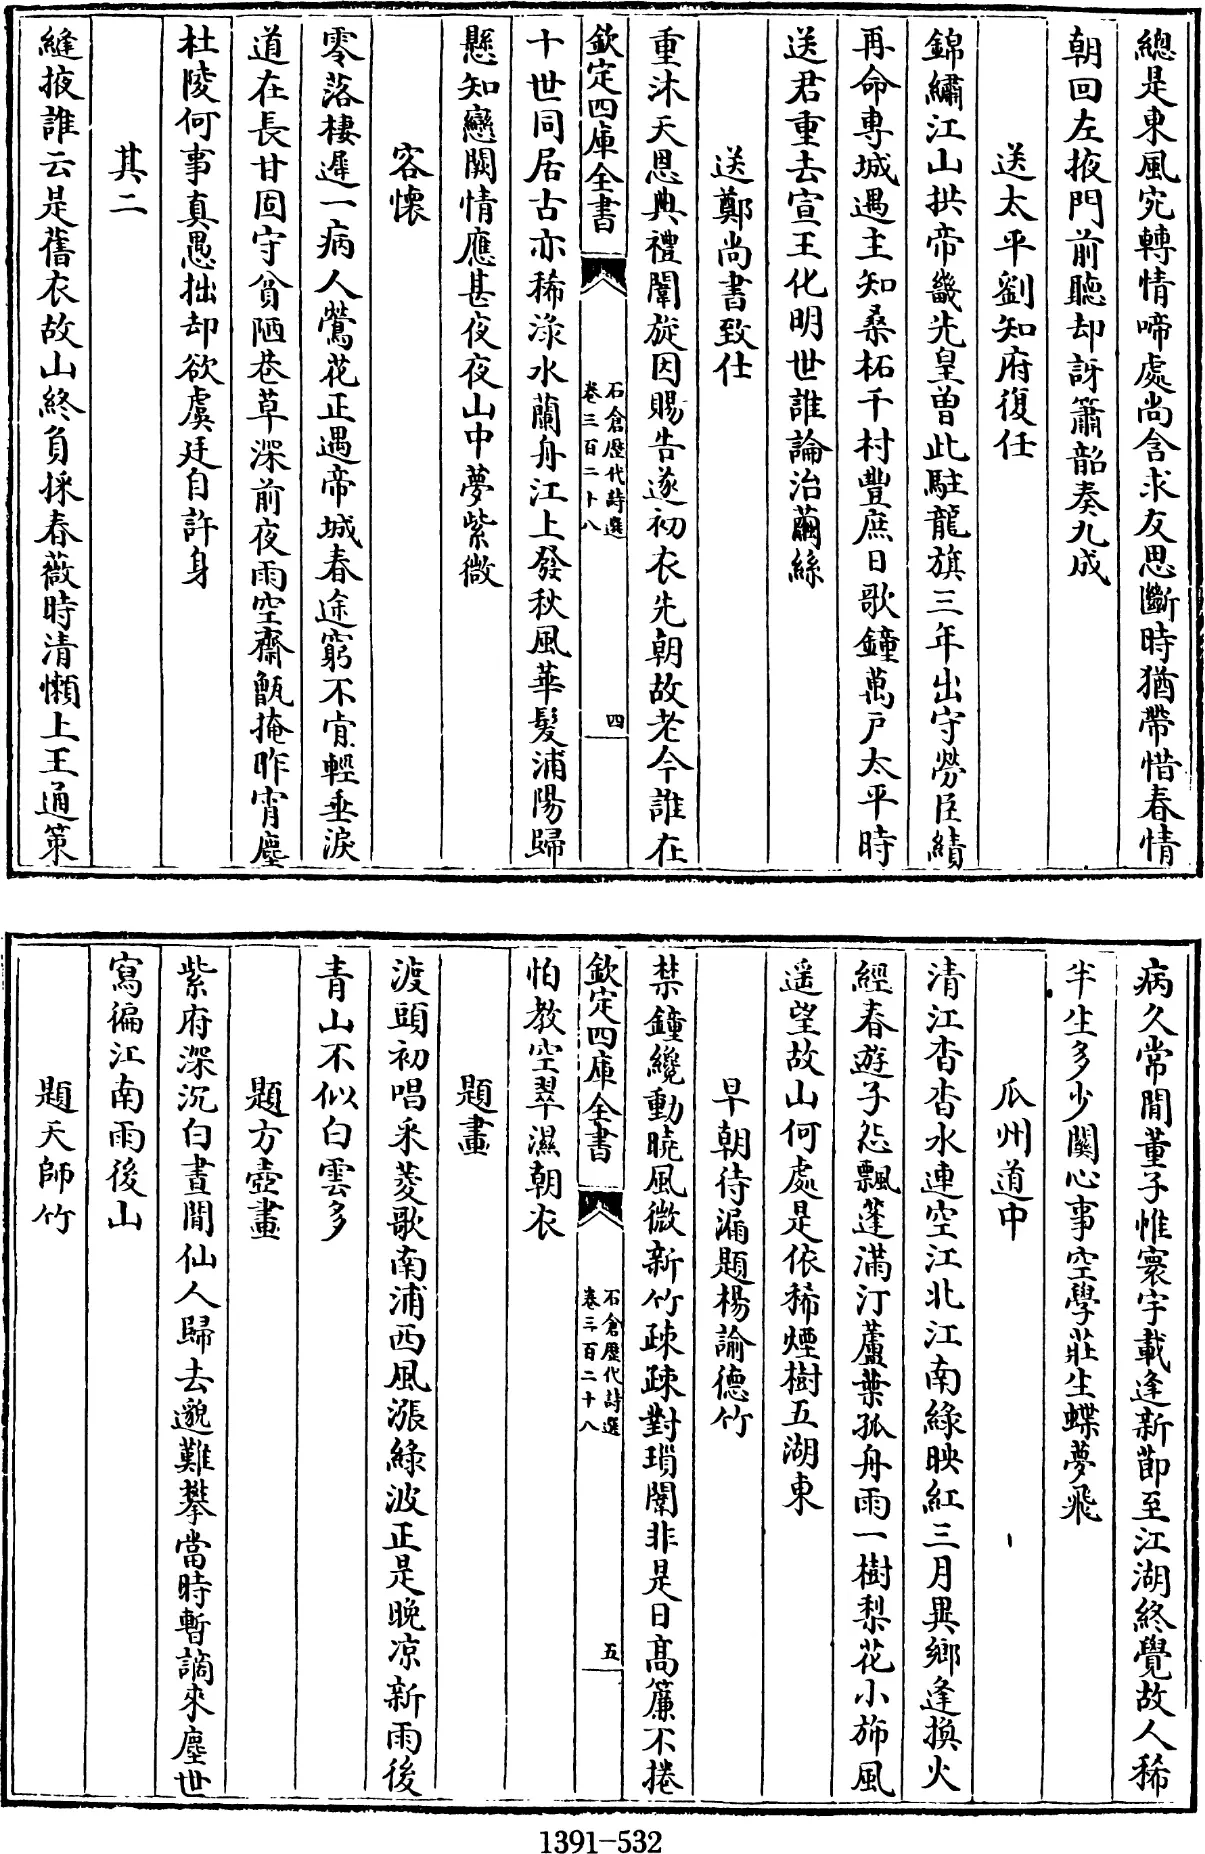 總是東風宛轉情啼處尚含求友思斷時猶帶惜春情
朝回左掖門前聽却訝簫韶奏九成
送太平劉知府復任
錦繡江山拱帝畿先皇曽此駐龍旗三年出守勞臣績
再命專城遇主知桑柘千村豐庶日歌鐘萬戸太平時
送君重去宣王化明世誰論治繭絲
送鄭尚書致仕
重沐天恩典禮闈旋因賜告遂初衣先朝故老今誰在
欽定四庫全書
石倉歴代詩選
卷三百二十八
四
十世同居古亦稀渌水蘭舟江上發秋風華髪浦陽歸
懸知戀闕情應甚夜夜山中夢紫微
客懷
零落棲遲一病人鶯花正遇帝城春途窮不肯輕垂淚
道在長甘固守貧陋巷草深前夜雨空齋甑掩昨宵塵
杜陵何事真愚拙却欲虞廷自許身
其二
縫掖誰云是舊衣故山終負採春薇時清懶上王通策
病久常閒董子帷寰宇載逢新節至江湖終覺故人稀
半生多少關心事空學莊生蝶夢飛
瓜州道中
清江杳杳水連空江北江南緑映紅三月異鄉逢換火
經春遊子怨飄蓬滿汀蘆葉孤舟雨一樹梨花小斾風
遥望故山何處是依稀煙樹五湖東
早朝待漏題楊諭德竹
禁鐘纔動曉風微新竹疎疎對瑣闈非是日髙簾不捲
欽定四庫全書
石倉歴代詩選
卷三百二十八
五
怕教空翠濕朝衣
題畫
渡頭初唱采菱歌南浦西風漲緑波正是晩凉新雨後
青山不似白雲多
題方壺畫
紫府深沉白晝閒仙人歸去邈難攀當時暫謫來塵世
寫徧江南雨後山
題天師竹
1391-532